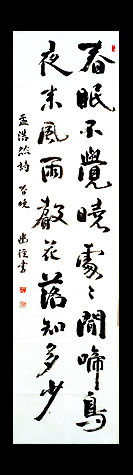 春眠不覺曉處處聞啼鳥
夜来風雨聲花落知多少
孟浩然詩 春曉